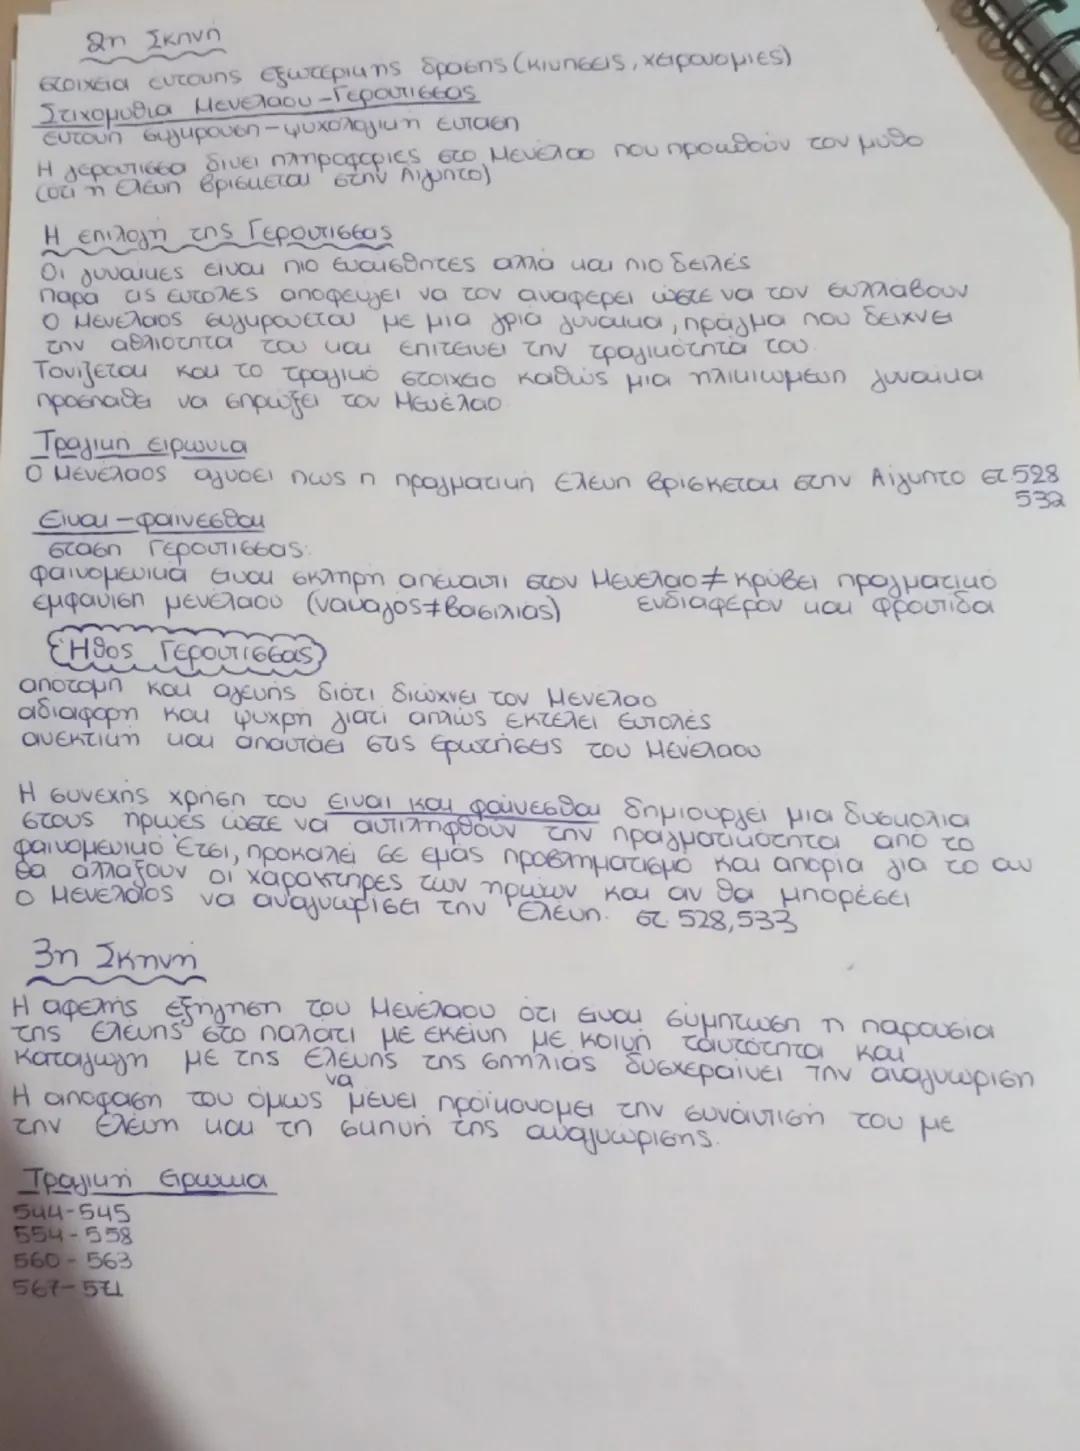 2η Σκηνή
στοιχεία έντονης εξωτερικης δρασης (κινησεις, χειρονομιες)
Στιχομυθια Μενελαου - Γεροντισσας
έντονη συγκρουση - ψυχολογικη ενταση
Η γεροντισσα δινει πληροφοριες στο Μενέλαο που προωθούν τον μυθο
(οτι η Ελενη βρισκεται στην Αιγυπτο)
Η επιλογη της Γεροντισσας
Οι γυναικες ειναι πιο ευαισθητες αλλα και πιο δειλές
παρα τις εντολες αποφευγει να τον αναφερει ώστε να τον συλλαβουν
Ο Μενελαος συγκρουεται με μια γρια γυναικα, πραγμα που δειχνει
την αθλιοτητα του και επιτεινει την τραγικότητα του.
Τονιζεται και το τραγικό στοιχειο καθώς μια ηλικιωμενη γυναικα
προσπαθει να σπρωξει τον Μενέλαο
Τραγικη ειρωνια
Ο Μενέλαος αγνοει πως η πραγματικη Ελενη βρισκεται στην Αίγυπτο στ. 528
532
Ειναι - φαινεσθαι
σταση Γεροντισσας:
φαινομενικά ειναι σκληρη απεναντι στον Μενελαο ≠ κρύβει πραγματικό
εμφανιση μενελαου (ναυαγος ≠ βασιλιας) ενδιαφέρον και φροντιδα
Ήθος Γεροντισσας
αποτομη και αγενης διότι διώχνει τον Μενελαο
αδιαφορη και ψυχρη γιατι απλώς εκτελει εντολές
ανεκτικη και απαντάει στις ερωτήσεις του Μενέλαου
Η συνεχής χρηση του ειναι και φαίνεσθαι δημιουργει μια δυσκολια
στους ηρωες ώστε να αντιληφθούν την πραγματικότητα από το
φαινομενικό. Έτσι, προκαλεί σε εμάς προβληματισμό και απορια για το αν
θα αλλαξουν οι χαρακτηρες των ηρώων και αν θα μπορέσει
ο Μενελαος να αναγνωρισει την Ελενη. στ. 528, 533
3η Σκηνη
Η αφελης εξήγηση του Μενέλαου ότι ειναι σύμπτωση η παρουσία
της Ελενης στο παλατι με εκεινη με κοινη ταυτότητα και
καταγωγη με της Ελενης της σπηλιάς δυσχεραίνει την αναγνωριση
Η αποφαση του όμως να μεινει προϊκονομει την συναντιση του με
την Ελενη και τη σκηνη της αναγνωρισης.
Τραγικη Ειρωνια
544-545
554-558
560-563
567-571